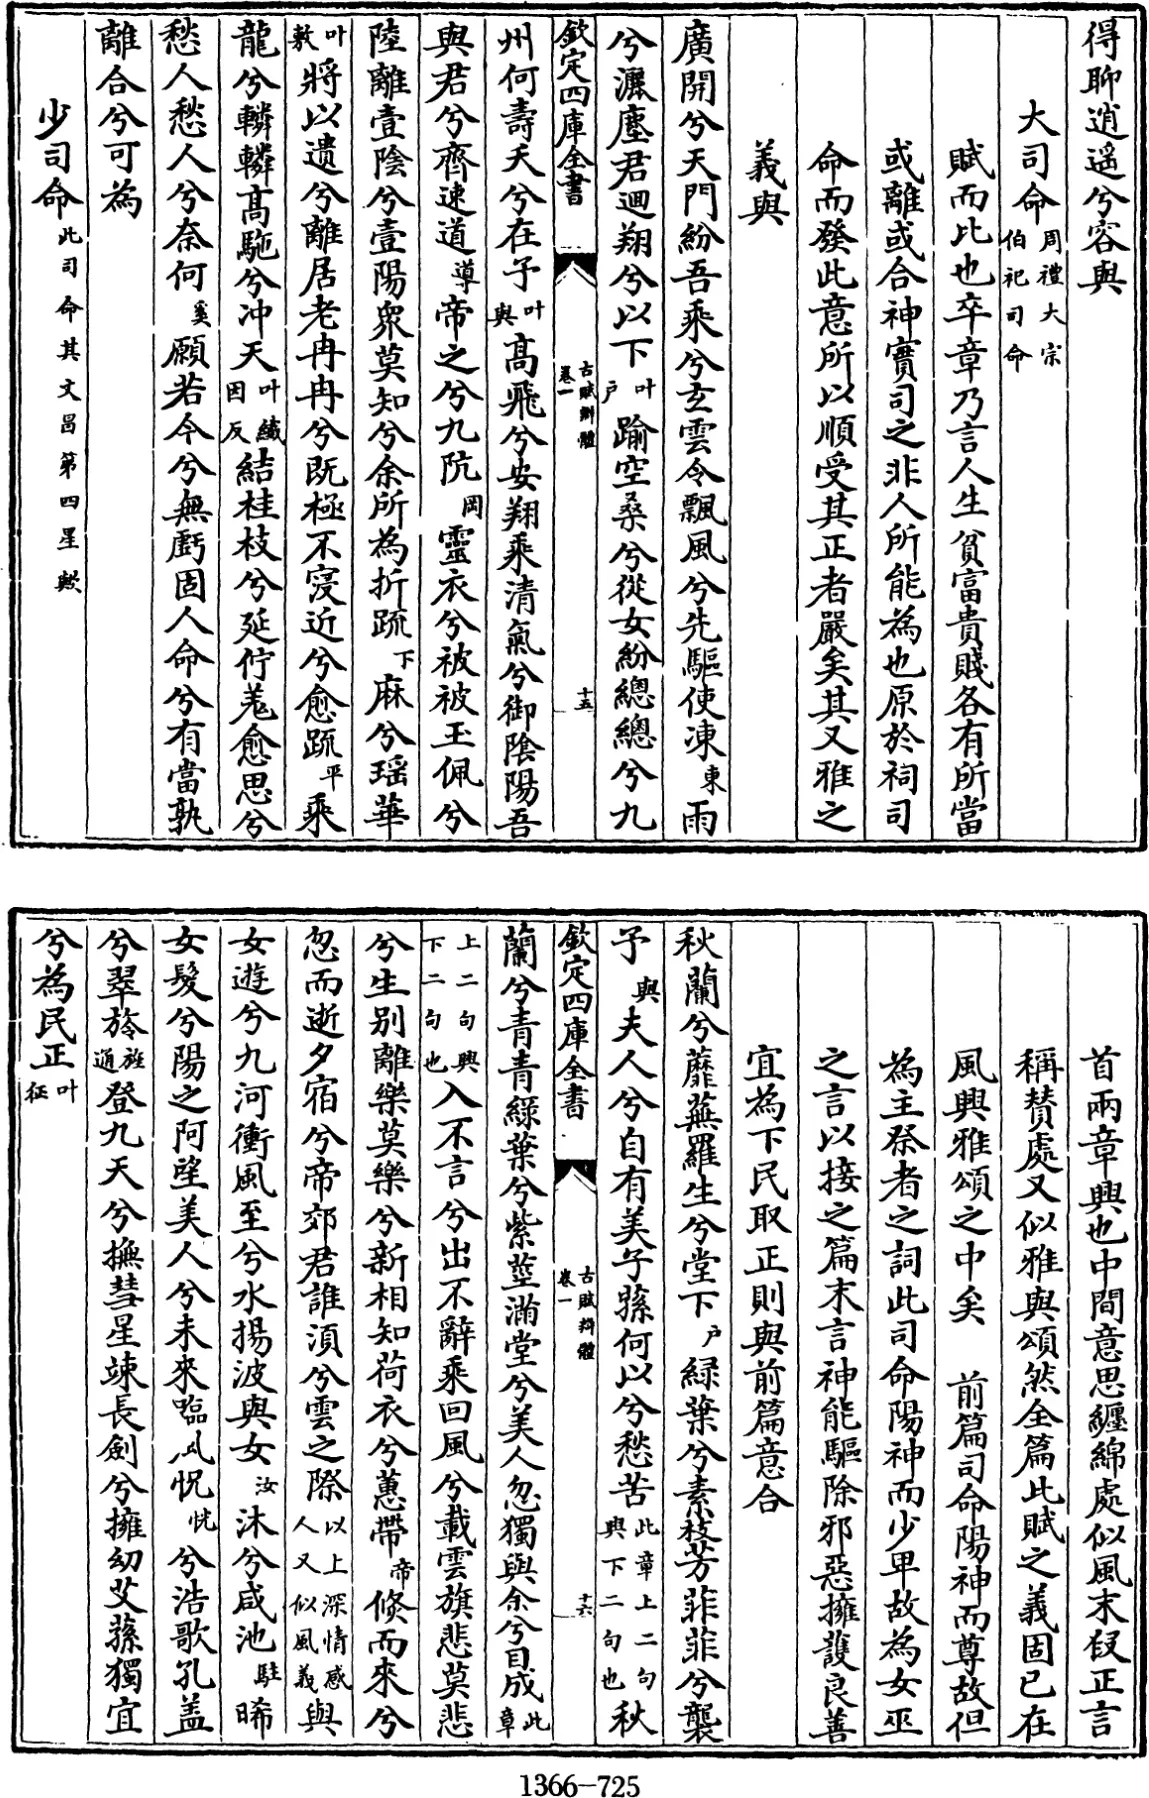 得聊逍遥兮容與
大司命周禮大宗伯祀司命
賦而比也卒章乃言人生貧富貴賤各有所當
或離或合神實司之非人所能為也原於祠司
命而發此意所以順受其正者嚴矣其又雅之
義與
廣開兮天門紛吾乘兮玄雲令飄風兮先驅使凍東雨
兮灑塵君迴翔兮以下叶戶踰空桑兮從女紛總總兮九
欽定四庫全書
古賦辯體
卷一
十五
州何壽夭兮在予叶與高飛兮安翔乘清氣兮御陰陽吾
與君兮齊速道導帝之兮九阬岡靈衣兮被被玉佩兮
陸離壹陰兮壹陽衆莫知兮余所為折疏下麻兮瑶華
叶敷將以遺兮離居老冉冉兮既極不寖近兮愈疏平乘
龍兮轔轔高駞兮沖天叶鐵因反結桂枝兮延佇羌愈思兮
愁人愁人兮奈何奚願若今兮無虧固人命兮有當孰
離合兮可為
少司命此司命其文昌第四星歟
首兩章興也中間意思纏綿處似風末段正言
稱賛處又似雅與頌然全篇此賦之義固已在
風興雅頌之中矣　前篇司命陽神而尊故但
為主祭者之詞此司命陽神而少卑故為女巫
之言以接之篇末言神能驅除邪惡擁護良善
宜為下民取正則與前篇意合
秋蘭兮蘼蕪羅生兮堂下戶緑葉兮素枝芳菲菲兮襲
予與夫人兮自有美子蓀何以兮愁苦此章上二句興下二句也秋
欽定四庫全書
古賦辯體
卷一
十六
蘭兮青青緑葉兮紫莖滿堂兮美人忽獨與余兮目成此章
上二句興下二句也入不言兮出不辭乘回風兮載雲旗悲莫悲
兮生别離樂莫樂兮新相知荷衣兮蕙帶帝倏而來兮
忽而逝夕宿兮帝郊君誰湏兮雲之際以上深情感人又似風義與
女遊兮九河衝風至兮水揚波與女汝沐兮咸池駐晞
女髮兮陽之阿望美人兮未來臨風怳恍兮浩歌孔盖
兮翠旍旌通登九天兮撫彗星竦長劍兮擁幼艾蓀獨宜
兮為民正叶征
1366-725